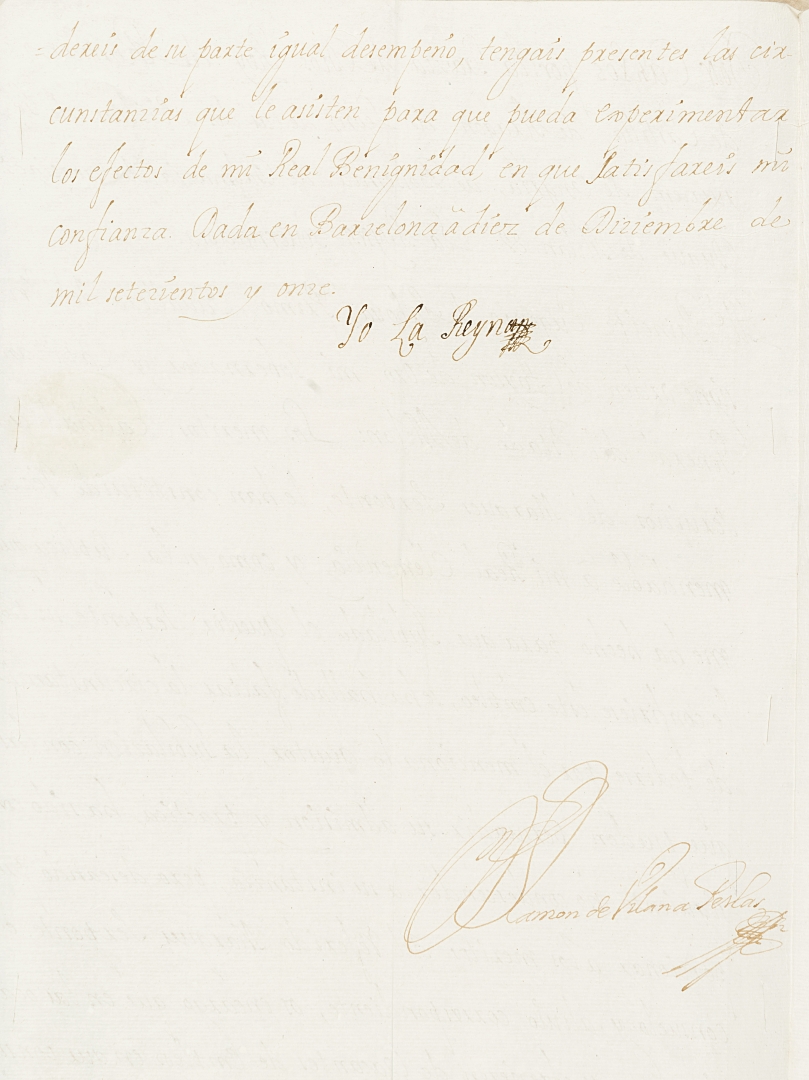 =dereis de su parte igual desempeño, tengais presentes las cir-
cunstanzias que le asisten para que pueda experimentar
los efectos de mi Real Benignidad, en que satisfareis mi
confianza. Dada en Barzelona à diez de Diziembre de
mil setezientos y onze.
Yo La Reyna
Ramon de Vilana Perlas